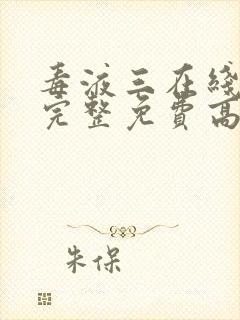 毒液三在线
完整免費高
朱保